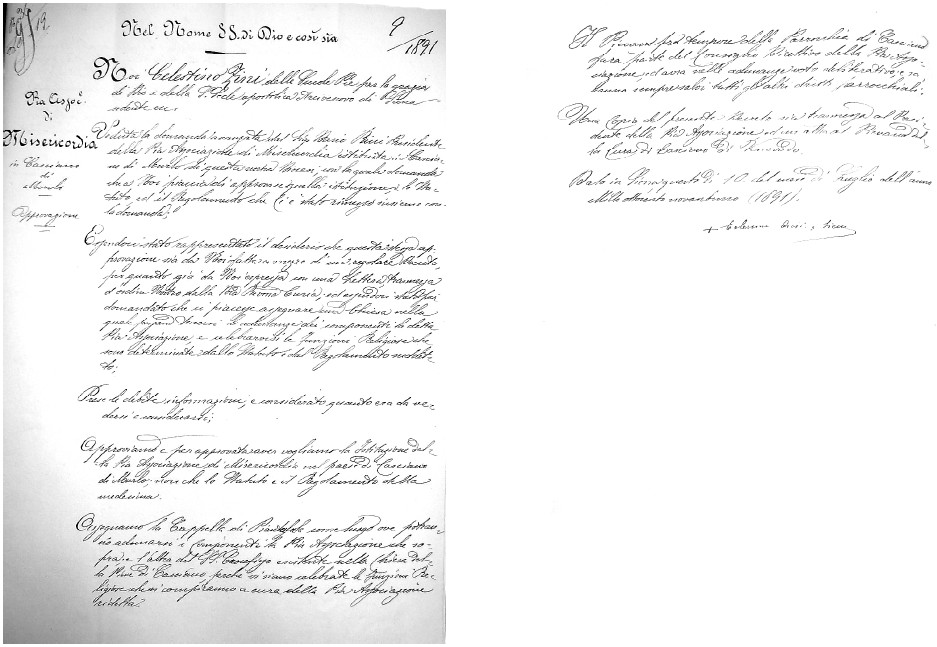 Nel Nome SS. di Dio e così sia
9
/1891
Noi Celestino Zini della Scuole Pie per la grazia
di Dio e della S. Sede apostolica Arcivescovo di Siena
Pia Assoc.
di
Misericordia
in Casciano
di
Murlo
Approvazione
Veduta la domanda avanzata dal Sig. Bini Presidente
della Pia Associazione di Misericordia istituita in Cascia-
no di Murlo di questa nostra Diocesi, con la quale domanda
che a Noi piaccia di approvare quella istituzione, e lo Sta-
tuto, ed il Regolamento che ci è stato rimesso insieme con
la domanda;
Essendoci stato rappresentato il desiderio che questa stessa ap-
provazione sia da Noi fatta a mezzo di un regolare Decreto,
per quanto già da Noi espressa in una Lettera trasmessa
d'ordine Nostro dalla Nostra Curia, ed essendoci stato poi
domandato che ci piacesse assegnare una Chiesa nella
quale le adunanze dei componenti la detta
Pia Associazione e celebrarvisi le funzioni Religiose che
sono determinate dallo Statuto e dal Regolamento
to;
Prese le debite informazioni, e considerato quanto era da ve-
dersi e considerarsi;
Approviamo e per approvata aver vogliamo la Istituzione del-
la Pia Associazione di Misericordia nel paese di Casciano
di Murlo, non che lo Statuto e il Regolamento della
medesima.
Assegniamo la Cappella di come luogo ove potran-
no adunarsi i componenti la Pia Associazione che so-
pra e l'altra del SS. Crocifisso esistente nella Chiesa del-
la Pieve di Casciano, perché vi siano celebrate le funzioni Re-
ligiose che si compiranno a cura della Pia Associazione
ridetta.
Il Pievano pro tempore della Parrocchia di Casciano
farà parte del Consiglio Direttivo della Pia Asso-
ciazione, ed avrà nelle adunanze voto deliberativo, e sa-
ranno sempre salvi tutti gli altri diritti parrocchiali.
Una Copia del presente Decreto sia trasmessa al Presi-
dente della Pia Associazione ed un altra al Pievano del-
la Cura di Casciano di Murlo.
Dato in Siena questo dì 10 del mese di Luglio dell'anno
Mille ottocento novantuno (1891).
+ Celestino Arciv. di Siena